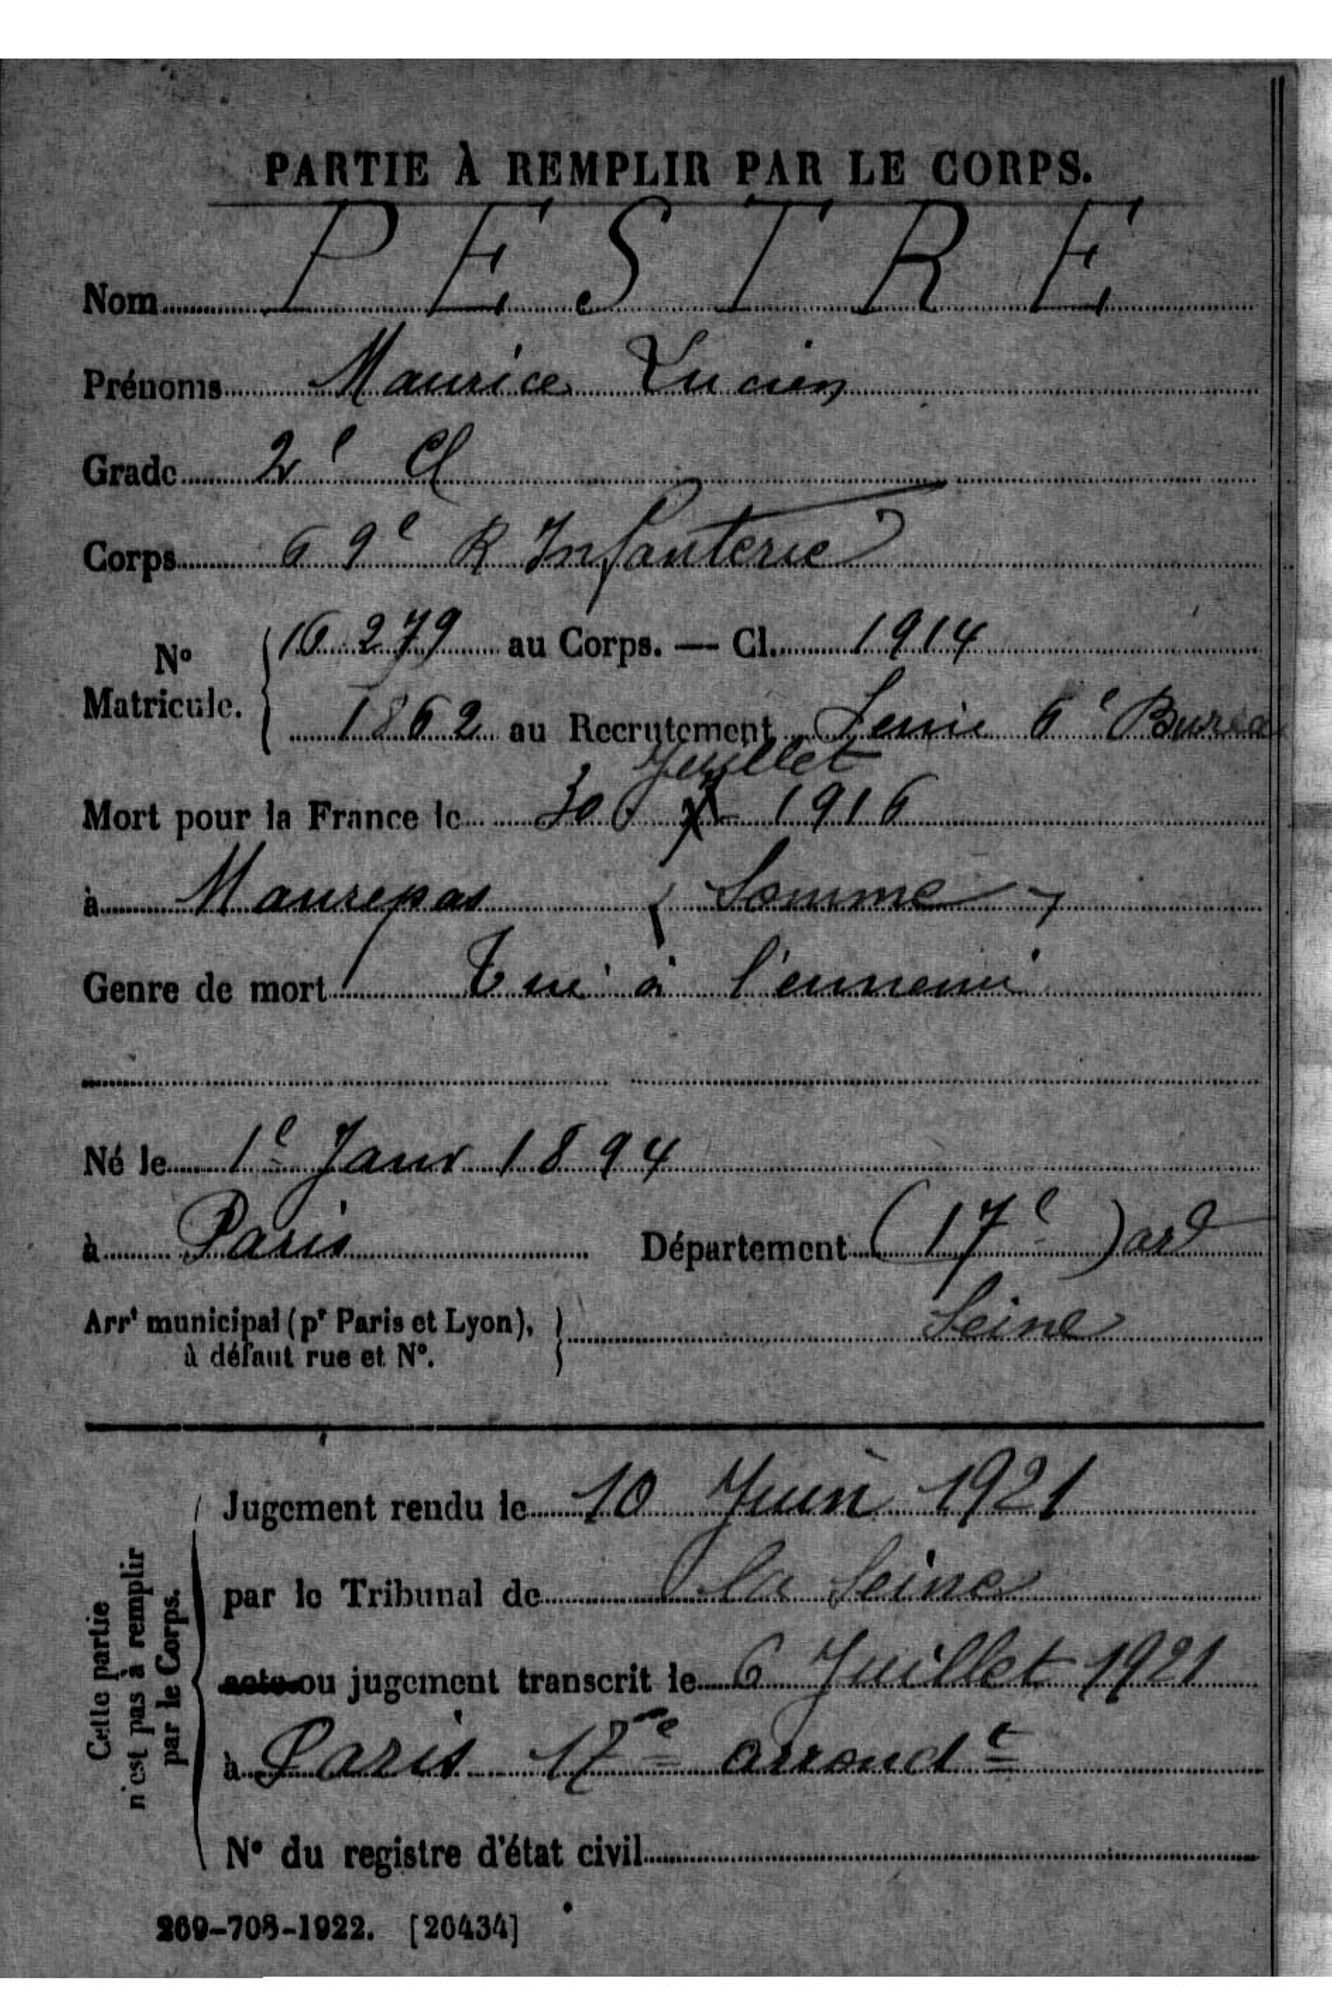 PARTIE À REMPLIR PAR LE CORPS.
Nom PESTRE
Prénoms Maurice Lucien
Grade 2e Cl
Corps 69e R Infanterie
No Matricule. 16279 au Corps. — Cl. 1914
1862 au Recrutement Seine 6e Bureau
Juillet
Mort pour la France le 30 1916
à Maurepas (Somme)
Genre de mort Tué à l'ennemi
Né le 1e Janv 1894
à Paris Département (17e) ard
Arrt municipal (pr Paris et Lyon), Seine
à défaut rue et No.
Cette partie
n'est pas à remplir
par le Corps.
Jugement rendu le 10 Juin 1921
par le Tribunal de la Seine
acte ou jugement transcrit le 6 Juillet 1921
à Paris 17me arrondt
No du registre d'état civil
269-708-1922. [26434]